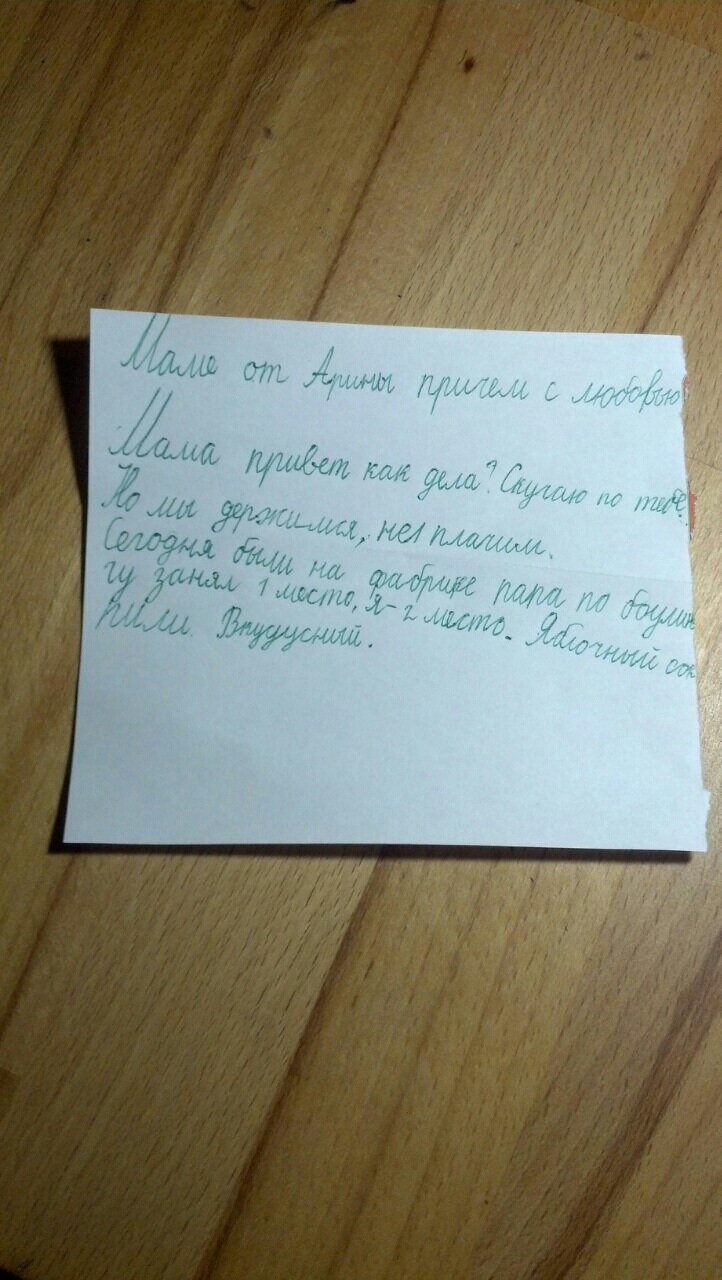 Маме от Арины причем с любовью
Мама привет как дела? Скучаю по тебе.
Но мы держимся, не плачим.
Сегодня были на фабрике папа по боулин
гу занял 1 место, я-2 место. Яблочный сок
пили. Вкудусный.